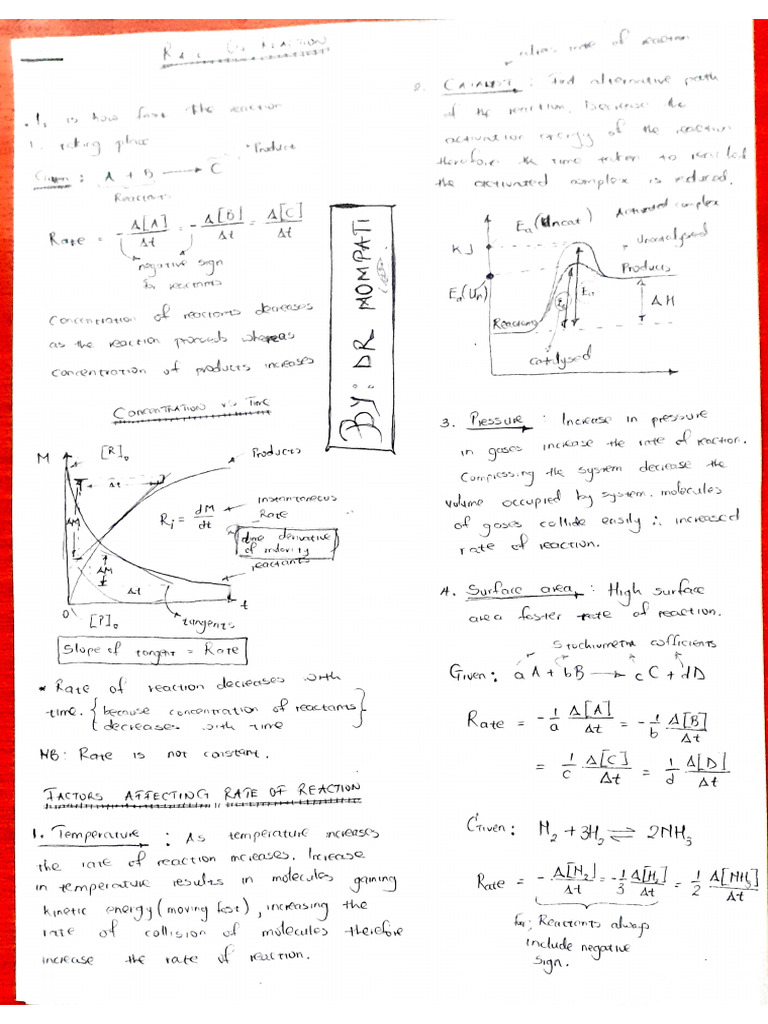 RATE OF REACTION
. It is how fast the reaction
is taking place
Given : A + B → C
Product
Reactants
Rate = - Δ[A]/Δt = - Δ[B]/Δt = Δ[C]/Δt
negative sign
for reactants
Concentration of reactants decreases
as the reaction proceeds whereas
concentration of products increases
BY: DR MOMPATI
CONCENTRATION VS TIME
M
[R]₀
Products
Δt
ΔM
Ri = dM/dt
instantaneous
Rate
time derivative
of molarity
reactants
ΔM
Δt
0
[P]₀
t
tangents
Slope of tangent = Rate
* Rate of reaction decreases with
time. {because concentration of reactants
decreases with time}
NB: Rate is not constant.
FACTORS AFFECTING RATE OF REACTION
1. Temperature : As temperature increases
the rate of reaction increases. Increase
in temperature results in molecules gaining
kinetic energy (moving fast), increasing the
rate of collision of molecules therefore
increase the rate of reaction.
rate of reaction
2. CATALYST : Find alternative path
of the reaction. Decrease the
activation energy of the reaction
therefore the time taken to
the activated complex is reduced.
Ea (Uncat)
Activated complex
KJ
Uncatalysed
Products
Ea (Un)
Reactions
ΔH
catalysed
3. Pressure : Increase in pressure
in gases increase the rate of reaction.
Compressing the system decrease the
volume occupied by system. molecules
of gases collide easily ∴ increased
rate of reaction.
4. Surface area : High surface
area faster rate of reaction.
Stochiometric cofficients
Given: aA + bB → cC + dD
Rate = - 1/a Δ[A]/Δt = - 1/b Δ[B]/Δt
= 1/c Δ[C]/Δt = 1/d Δ[D]/Δt
Given: N₂ + 3H₂ ⇌ 2NH₃
Rate = - Δ[N₂]/Δt = - 1/3 Δ[H₂]/Δt = 1/2 Δ[NH₃]/Δt
For: Reactants always
include negative
sign.